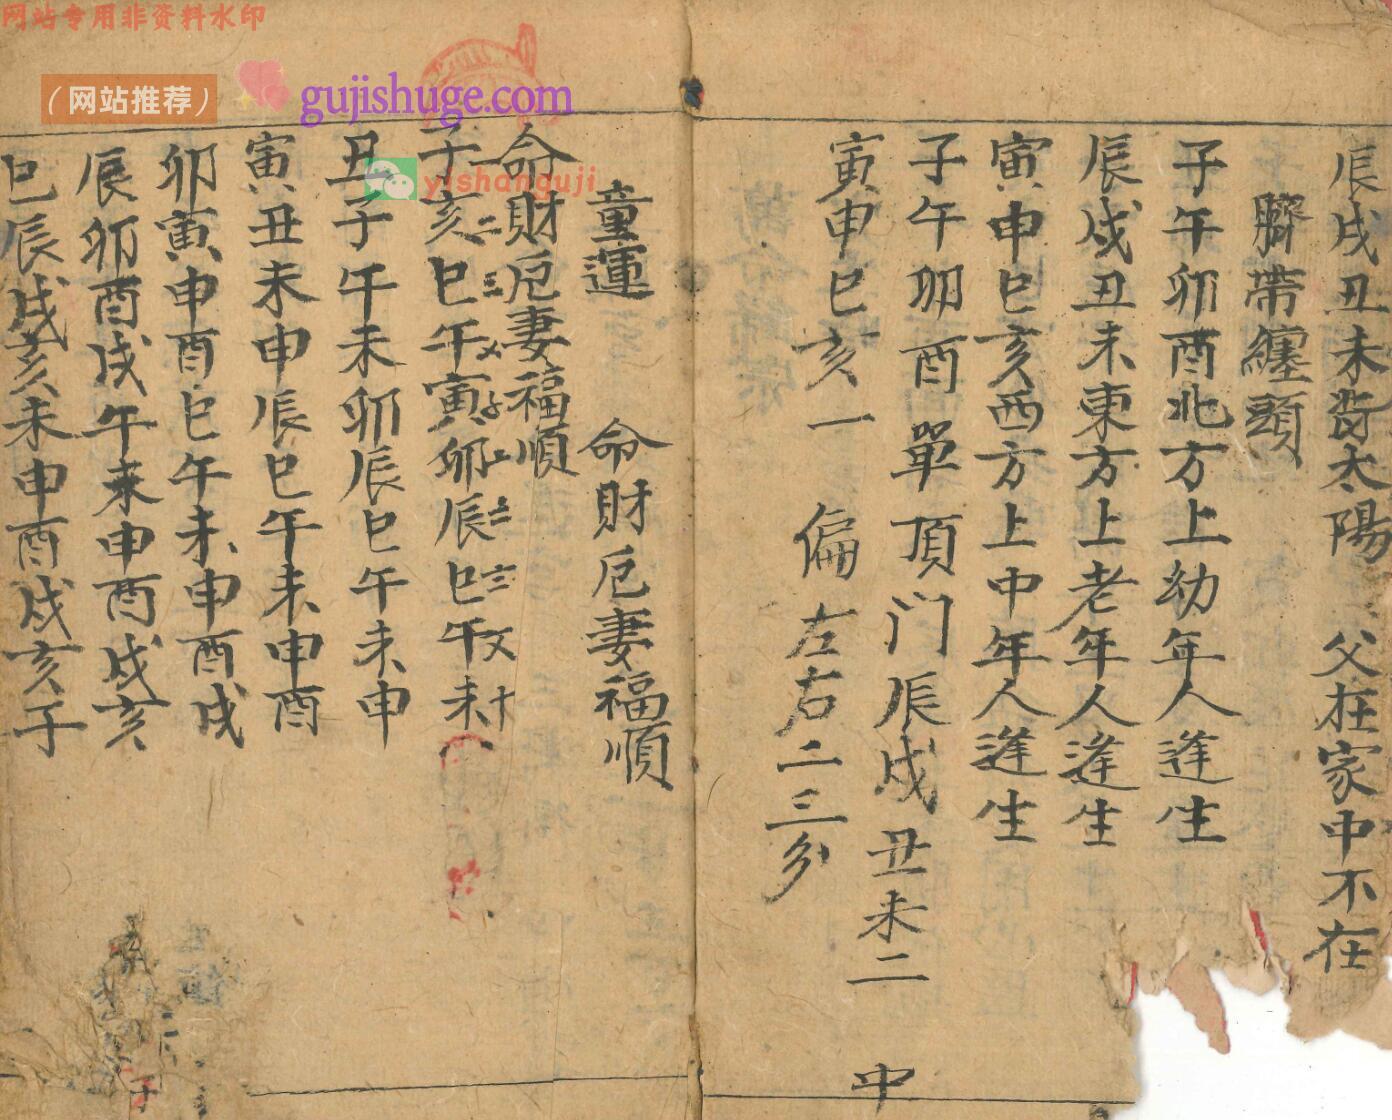 网站专用非资料水印
（网站推荐）
gujishuge.com
yishanguji
辰戌丑未背太陽 父在家中不在
臍帶纏頭
子午卯酉北方上幼年人逢生
辰戌丑未東方上老年人逢生
寅申巳亥西方上中年人逢生
子午卯酉單頂门辰戌丑未二
中
寅申巳亥一 偏左右二三分
童運 命財厄妻福順
命財厄妻福順
一二三
子亥巳午寅卯辰巳午未
丑子午未卯辰巳午未申
寅丑未申辰巳午未申酉
卯寅申酉巳午未申酉戌
辰卯酉戌午未申酉戌亥
巳辰戌亥未申酉戌亥子